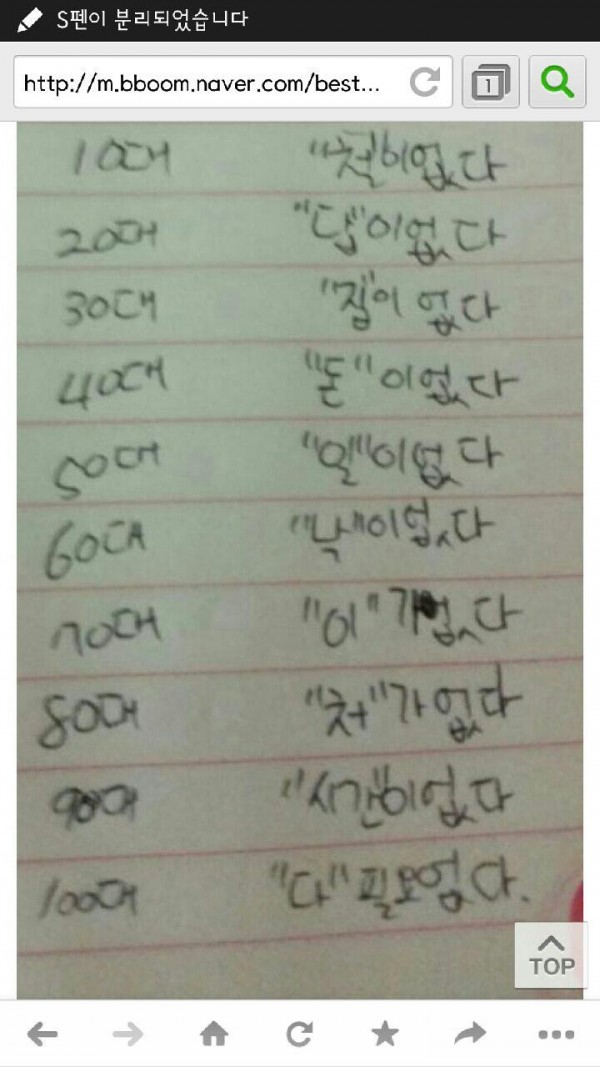 S펜이 분리되었습니다
http://m.bboom.naver.com/best...
1
10대 "철"이없다
20대 "답"이없다
30대 "집"이 없다
40대 "돈"이없다
50대 "일"이없다
60대 "낙"이없다
70대 "이"가없다
80대 "처"가없다
90대 "시간"이없다
100대 "다"필요없다.
TOP